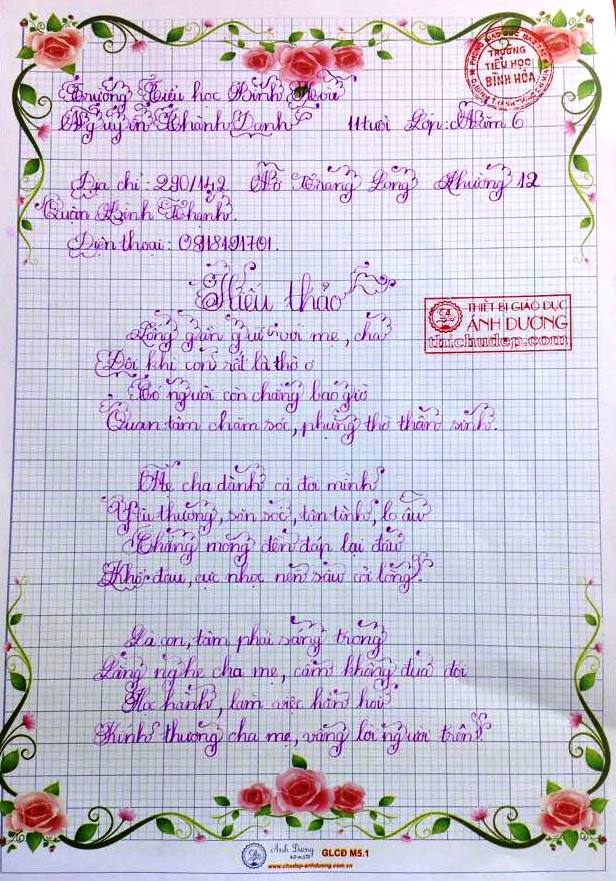 PHÒNG GIÁO DỤC ĐÀO TẠO
TRƯỜNG
TIỂU HỌC
BÌNH HÒA
Trường Tiểu học Bình Hòa
Nguyễn Khánh Danh 11 tuổi Lớp: Năm 6
Địa chỉ: 290/14,2 Nơ Trang Long Phường 12
Quận Bình Thạnh.
Điện thoại: 0918191701.
Hiếu thảo
THIẾT BỊ GIÁO DỤC
ÁNH DƯƠNG
thichudep.com
Sống gần gũi với mẹ, cha
Đôi khi con rất là thờ ơ
Có người còn chẳng bao giờ
Quan tâm chăm sóc, phụng thờ thân sinh.
Mẹ cha dành cả đời mình
Yêu thương, săn sóc, tận tình, lo âu
Chẳng mong đền đáp lại đâu
Khổ đau, cực nhọc nén sâu cõi lòng.
Là con, tâm phải sáng trong
Lắng nghe cha mẹ, cấm không đua đòi
Học hành, làm việc hẳn hoi
Kính thương cha mẹ, vâng lời người trên.
Ánh Dương
GLCĐ M5.1
www.chudep-anhduong.com.vn